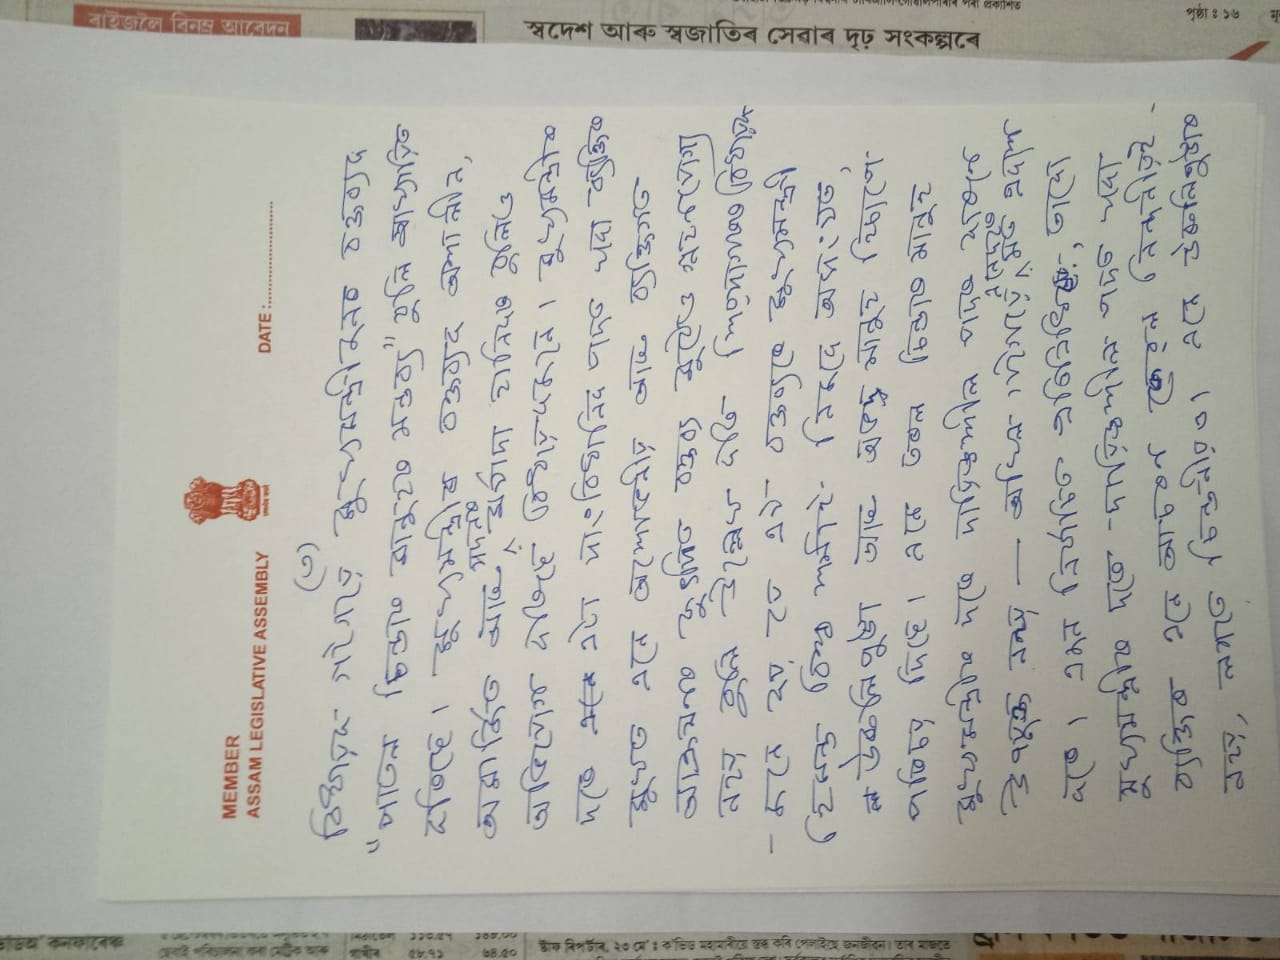 MEMBER
ASSAM LEGISLATIVE ASSEMBLY
DATE :
(৩)
বিধায়ক গগৈয়ে মুখ্যমন্ত্ৰীজনৰ বক্তব্যক
"পাতল চিন্তাৰ মানুহৰ মন্তব্য" বুলি আখ্যায়িত
কৰিছে। মুখ্যমন্ত্ৰীৰ বক্তব্যক অশালীন,
পদৰ
অমাৰ্জিত আৰু মৰ্যাদা হানিকৰ বুলিও
অভিযোগ কৰিছে বিধায়কজনে। মুখ্যমন্ত্ৰীৰ
দৰে এটা সাংবিধানিক পদত থকা ব্যক্তিৰ
মুখত এনে অশোভনীয় আৰু ব্যক্তিগত
আক্ৰমণৰ কুৎসিত বক্তব্য মুঠেও গ্ৰহণযোগ্য
নহয় বুলি উল্লেখ কৰি শিৱসাগৰৰ বিধায়ক
জনে কয় যে এই বক্তব্যৰে মুখ্যমন্ত্ৰী
হিমন্ত বিশ্ব শৰ্মাই নিজকে অসংযত,
উচ্চলিপুঙা আৰু অভদ্ৰ মানুহ হিচাপে
পৰিচয় দিছে। এনে তৰল চিন্তাৰ মানুহ
মুখ্যমন্ত্ৰীৰ দৰে দায়িত্বশীল পদৰ বাবে
এনেদৰে
উপযুক্ত নহয় — অখিল গগৈয়ে মত প্ৰকাশ
কৰে। এজন নিৰ্বাচিত প্ৰতিনিধি, তাকো
মুখ্যমন্ত্ৰীৰ দৰে দায়িত্বশীল পদত থকা
ব্যক্তিৰ এনে আচৰণ কেৱল নিন্দনীয়ই
নহয়, লগতে চিন্তনীয়ও। এনে উচ্চলিপুঙাৰ
বহিৰ্ভাৰত বিনম্ৰ আবেদন
স্বদেশ আৰু স্বজাতিৰ সেৱাৰ দৃঢ় সংকল্পৰে